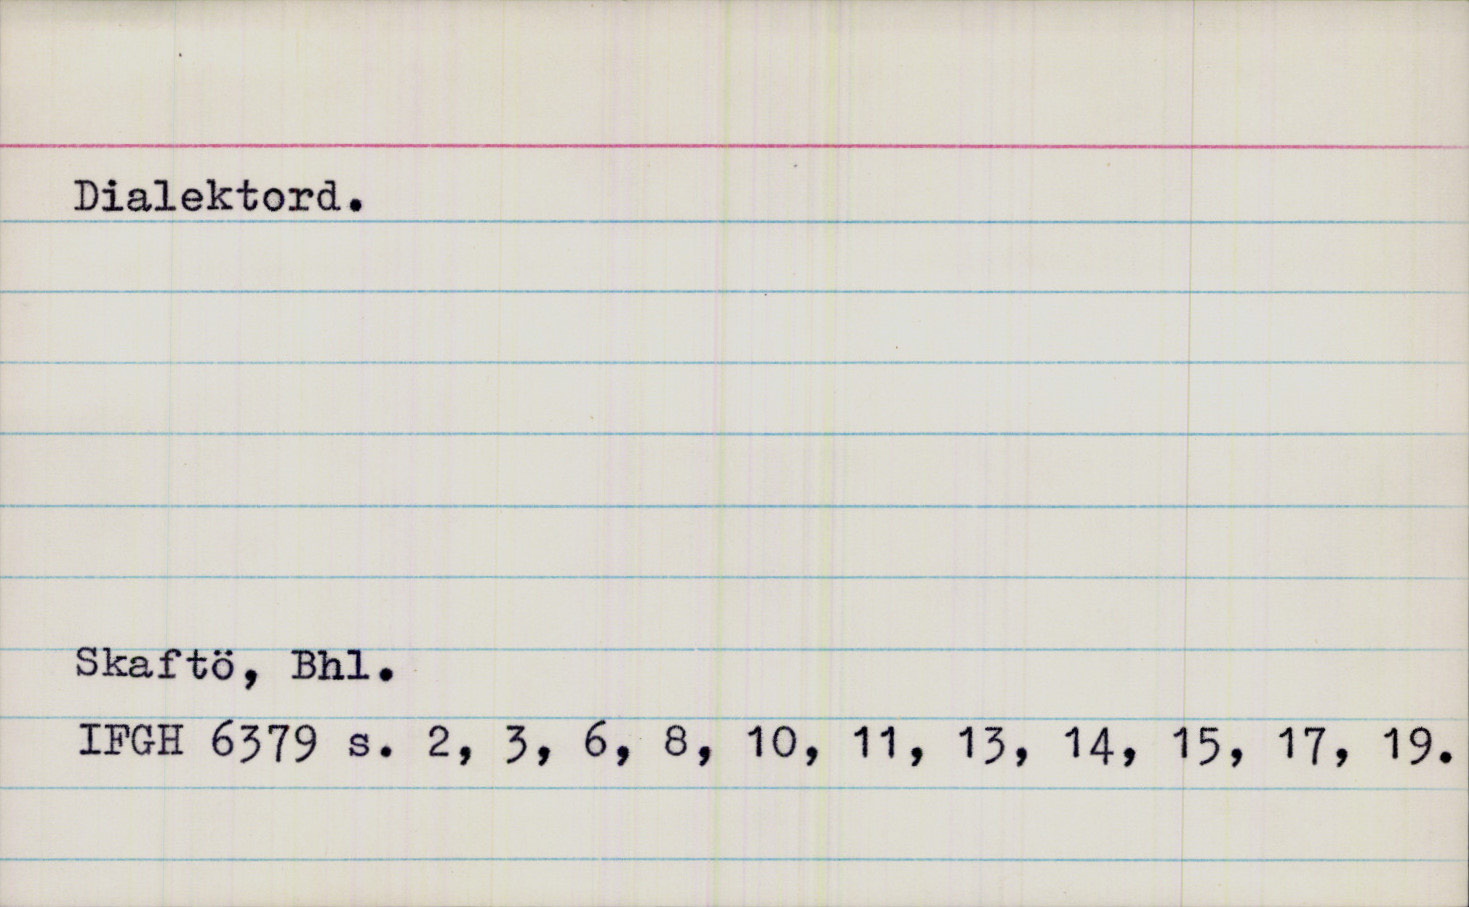 Dialektord.
Skaftö, Bhl.
IFGH 6379 s. 2, 3, 6, 8, 10, 11, 13, 14, 15, 17, 19.